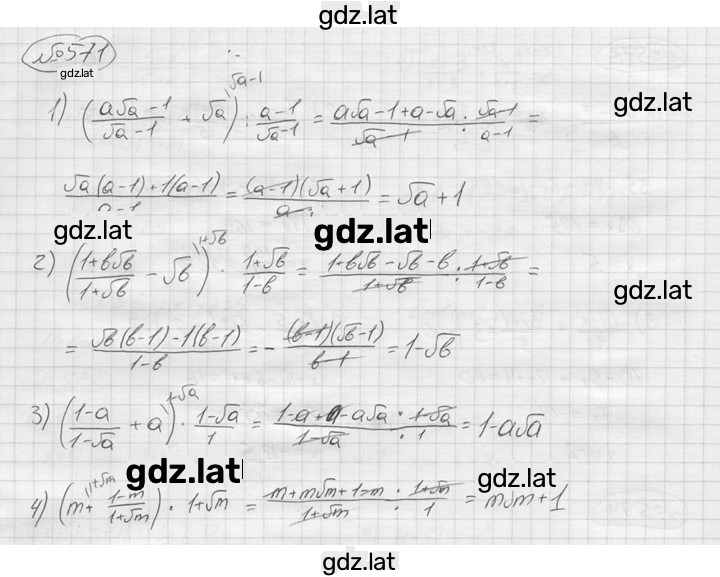 gdz.lat
№571
gdz.lat
√a-1
1) ((a√a-1)/(√a-1) + √a) : (a-1)/(√a-1) = (a√a-1+a-√a)/(√a-1) · (√a-1)/(a-1) =
gdz.lat
(√a(a-1)+1(a-1))/(a-1) = ((a-1)(√a+1))/(a-1) = √a+1
gdz.lat
gdz.lat
1+√b
2) ((1+b√b)/(1+√b) - √b) · (1+√b)/(1-b) = (1+b√b-√b-b)/(1+√b) · (1+√b)/(1-b) =
gdz.lat
= (√b(b-1)-1(b-1))/(1-b) = - ((b-1)(√b-1))/(b-1) = 1-√b
1-√a
3) ((1-a)/(1-√a) + a) · (1-√a)/1 = (1-a+a-a√a)/(1-√a) · (1-√a)/1 = 1-a√a
gdz.lat
gdz.lat
1+√m
4) (m + (1-m)/(1+√m)) · 1+√m = (m+m√m+1-m)/(1+√m) · (1+√m)/1 = m√m+1
gdz.lat